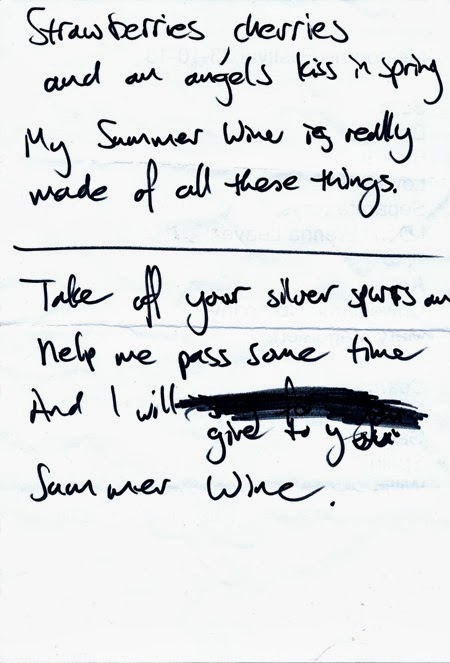 Strawberries cherries
and an angels kiss in spring
My Summer Wine is really
made of all these things.
Take off your silver spurs an
help me pass some time
And I will
give to you
Summer Wine.